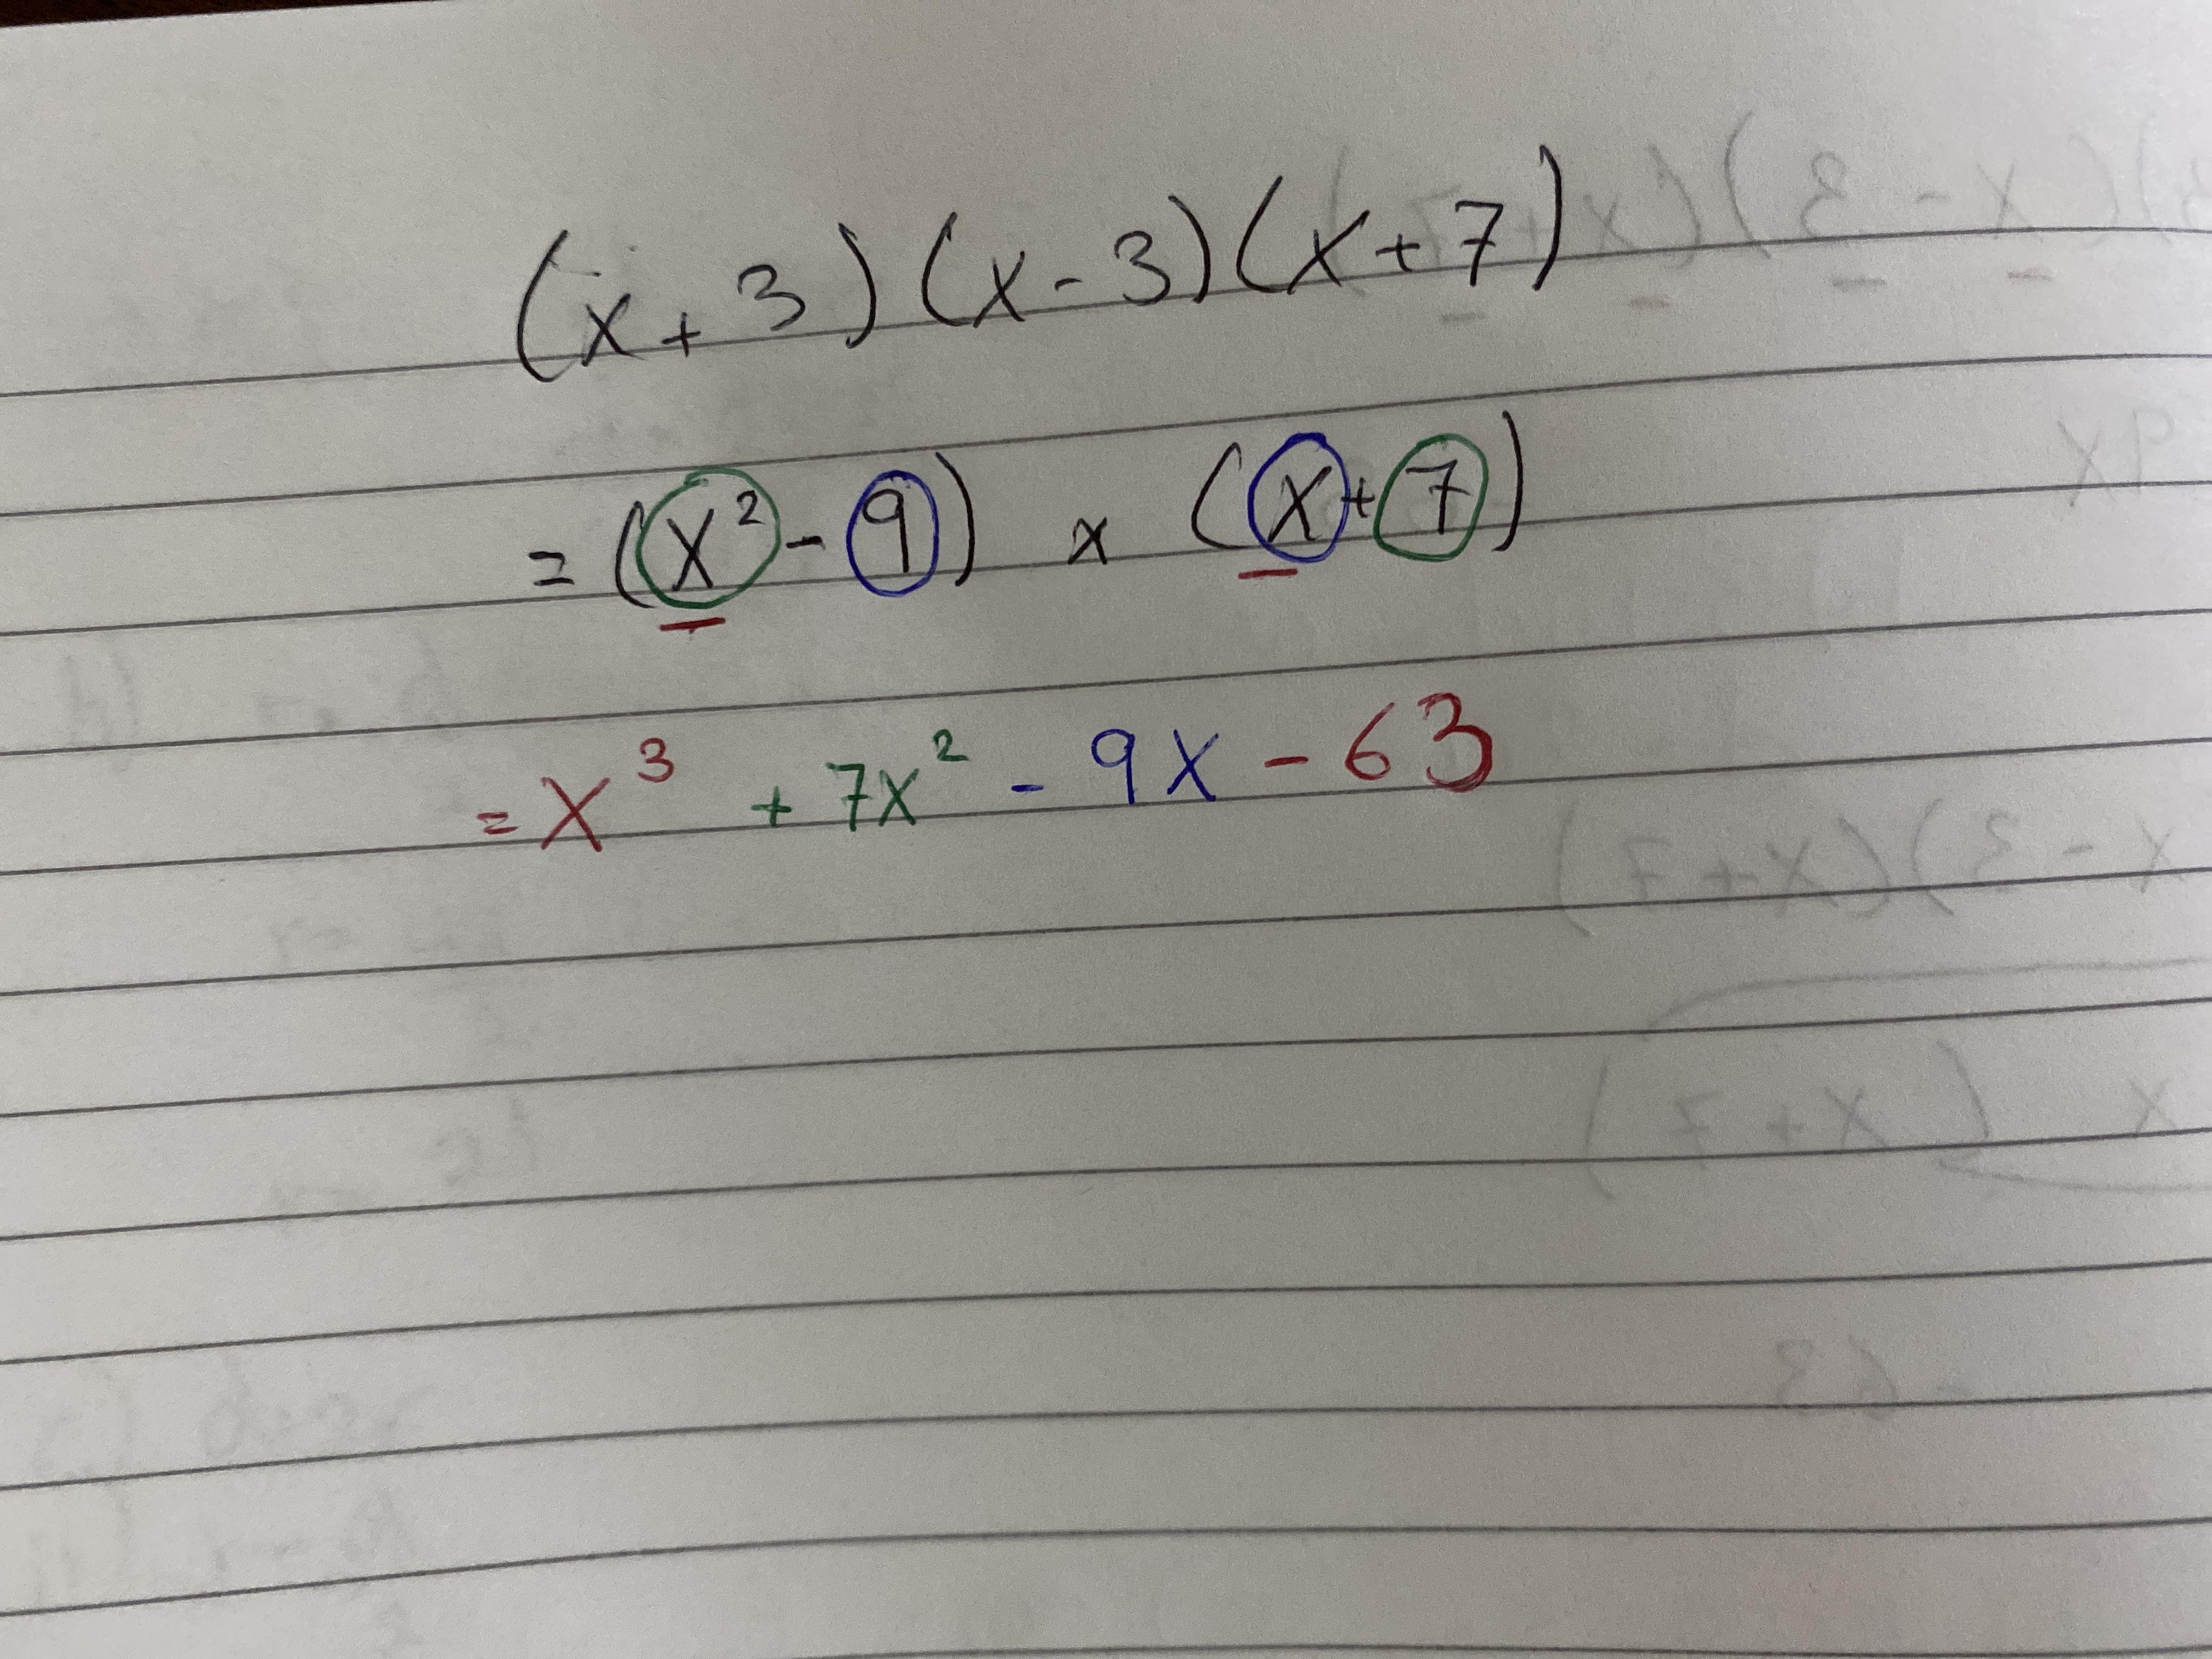 (x+3)(x-3)(x+7)
=(x²-9) x (x+7)
=x³ +7x² - 9x - 63